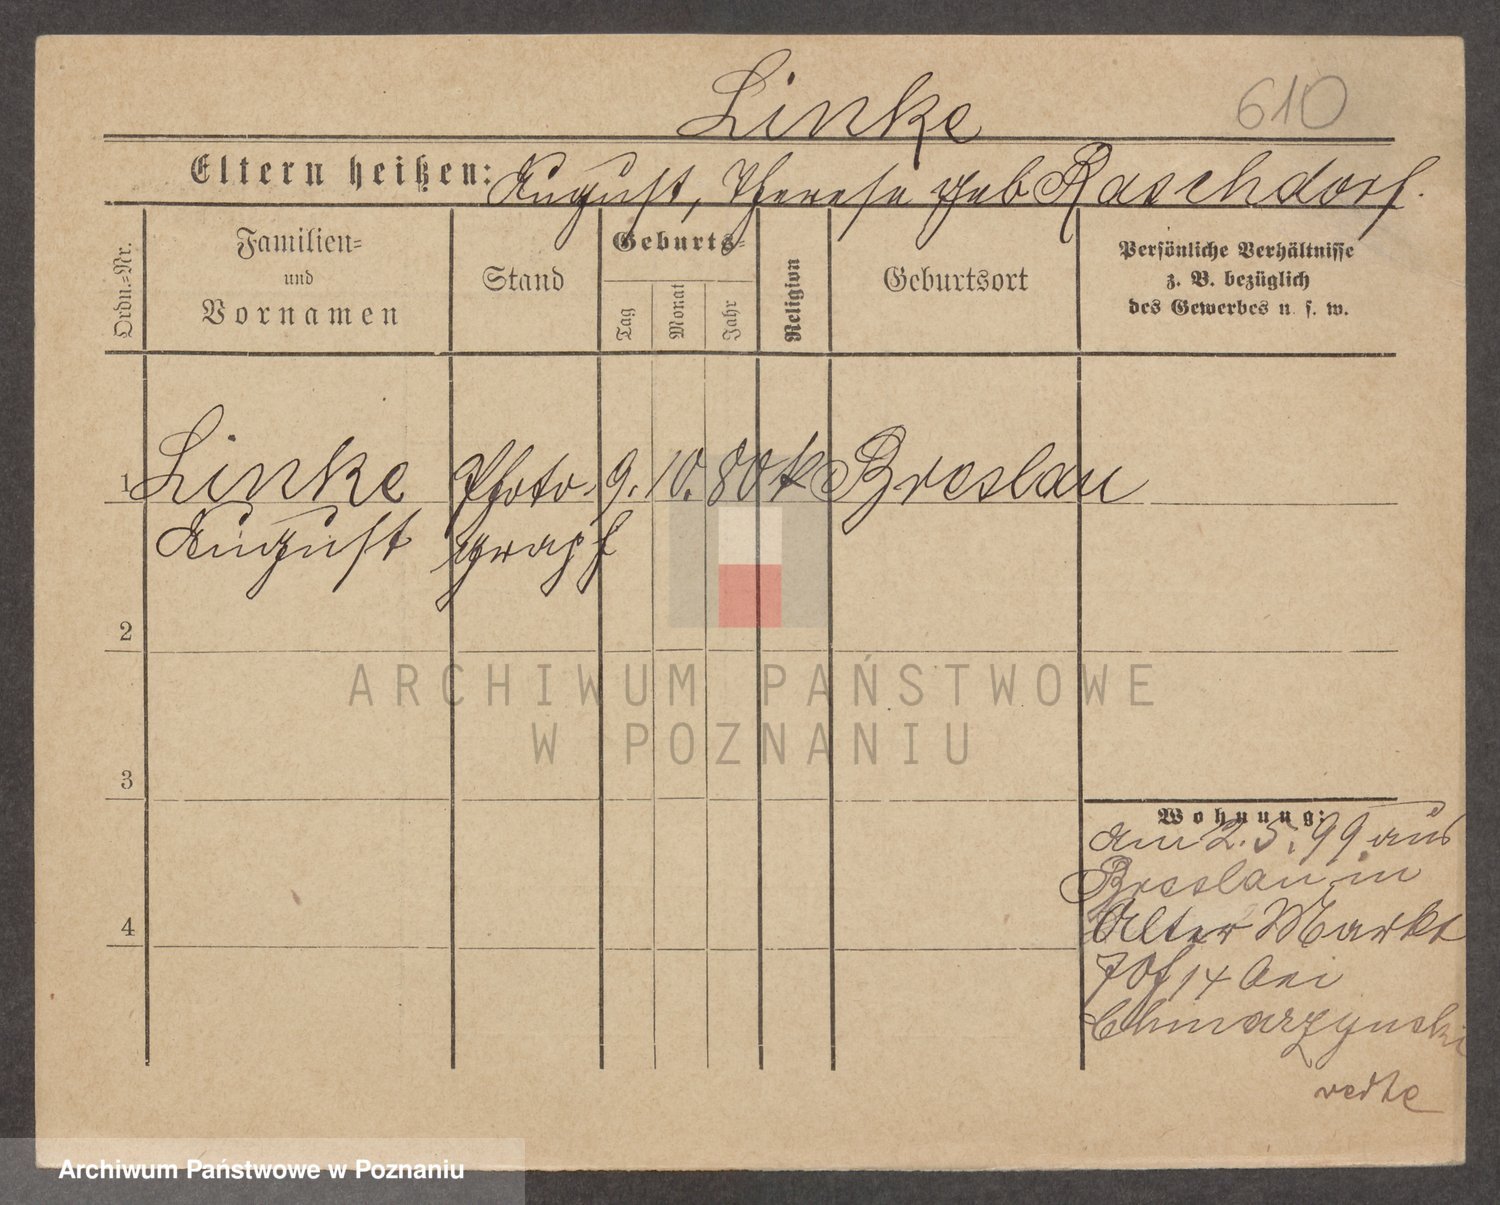 Linke
610
Eltern heißen: August, Therese geb Raschdorf.
Ordn.-Nr.
Familien-
und
Vornamen
Stand
Geburts-
Tag
Monat
Jahr
Religion
Geburtsort
Persönliche Verhältnisse
z. B. bezüglich
des Gewerbes u. s. w.
1 Linke Photo- 9. 10. 80 k Breslau
August graph
2
3
4
Wohnung:
am 2.5.99 aus
Breslau in
Alter Markt
70 14 bei
Chmarzynski
ARCHIWUM PAŃSTWOWE
W POZNANIU
Archiwum Państwowe w Poznaniu